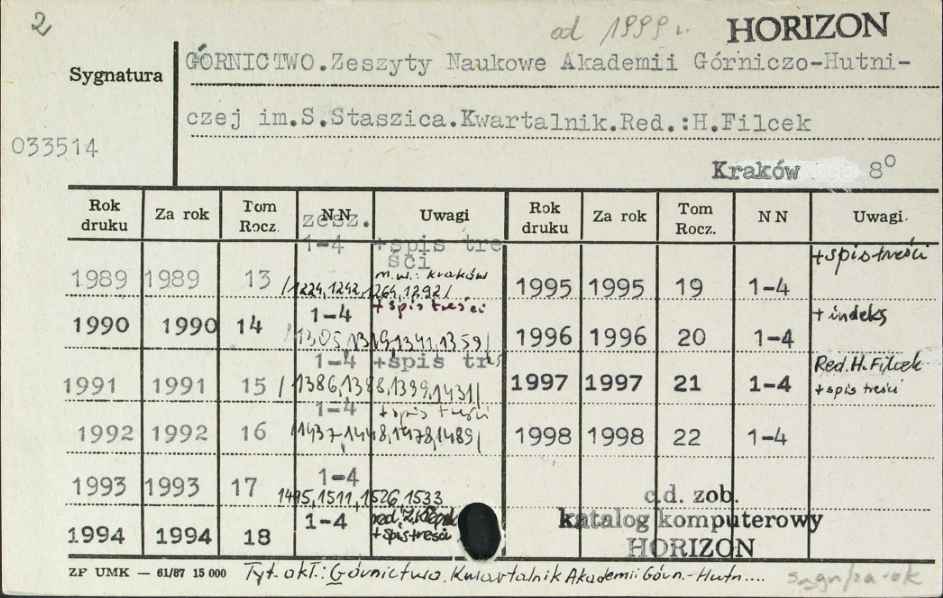 2
od 1999 r.
HORIZON
Sygnatura
GÓRNICTWO.Zeszyty Naukowe Akademii Górniczo-Hutni-
czej im.S.Staszica.Kwartalnik.Red.:H.Filcek
033514
Kraków 8°
Rok druku Za rok Tom Rocz. NN Uwagi Rok druku Za rok Tom Rocz. NN Uwagi
zesz.
1989 1989 13 1-4 +spis treści m.w.: Kraków
/1224,1242,1264,1292/
1990 1990 14 1-4 +spis treści
/1305,1319,1341,1359/
1991 1991 15 1-4 +spis treś
/1386,1388,1399,1431/
1992 1992 16 1-4 +spis treści
/1437,1448,1478,1489/
1993 1993 17 1-4
1495,1511,1526,1533
1994 1994 18 1-4 red. +spis treści
1995 1995 19 1-4 +spis treści
1996 1996 20 1-4 +indeks
1997 1997 21 1-4 Red. H. Filcek +spis treści
1998 1998 22 1-4
c.d. zob.
katalog komputerowy
HORIZON
ZP UMK — 61/87 15 000
Tyt. okł.: Górnictwo. Kwartalnik Akademii Górn.-Hutn....